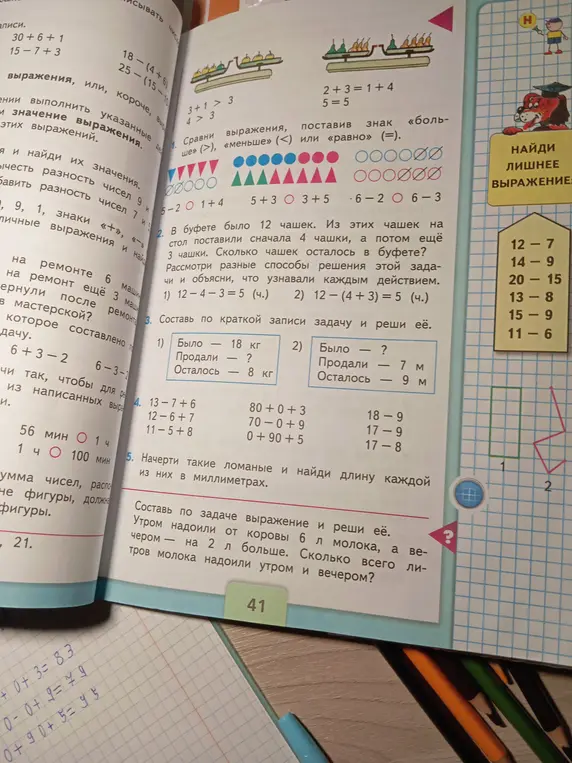 30 + 6 + 1
15 − 7 + 3
18 − (4 + 6)
25 − (15 −
выражения, или, короче,
выполнить указанные
значение выражения.
этих выражений.
и найди их значения.
разность чисел 9
разность чисел 7 и
9, 1, знаки «+», «−»
выражения и
на ремонте 6
на ремонт ещё 3
после
в мастерской?
которое составлено
6 + 3 − 2
6 − 3
так, чтобы для
из написанных
56 мин ○ 1 ч
1 ч ○ 100 мин
чисел,
фигуры,
фигуры.
21.
3 + 1 > 3
4 > 3
2 + 3 = 1 + 4
5 = 5
1. Сравни выражения, поставив знак «боль-
ше» (>), «меньше» (<) или «равно» (=).
5 − 2 ○ 1 + 4
5 + 3 ○ 3 + 5
6 − 2 ○ 6 − 3
2. В буфете было 12 чашек. Из этих чашек на
стол поставили сначала 4 чашки, а потом ещё
3 чашки. Сколько чашек осталось в буфете?
Рассмотри разные способы решения этой зада-
чи и объясни, что узнавали каждым действием.
1) 12 − 4 − 3 = 5 (ч.) 2) 12 − (4 + 3) = 5 (ч.)
3. Составь по краткой записи задачу и реши её.
1) Было — 18 кг
Продали — ?
Осталось — 8 кг
2) Было — ?
Продали — 7 м
Осталось — 9 м
4. 13 − 7 + 6 80 + 0 + 3 18 − 9
12 − 6 + 7 70 − 0 + 9 17 − 9
11 − 5 + 8 0 + 90 + 5 17 − 8
5. Начерти такие ломаные и найди длину каждой
из них в миллиметрах.
Составь по задаче выражение и реши её.
Утром надоили от коровы 6 л молока, а ве-
чером — на 2 л больше. Сколько всего ли-
тров молока надоили утром и вечером?
?
41
Н
НАЙДИ
ЛИШНЕЕ
ВЫРАЖЕНИЕ
12 − 7
14 − 9
20 − 15
13 − 8
15 − 9
11 − 6
1
2
+ 0 + 3 = 83
0 − 0 + 9 = 79
0 + 90 + 5 = 95